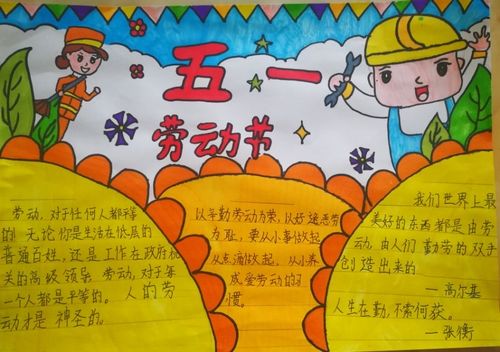 五一
劳动节
劳动，对于任何人都平等
的 无论你是生活在低层的
普通百姓，还是工作在政府机
关的高级领导 劳动，对于每
一个人都是平等的。人的劳
动才是 神圣的。
以辛勤劳动为荣，以好逸恶劳
为耻，要从小事做起
从点滴做起，从小养
成爱劳动的习
惯。
我们世界上最
美好的东西都是由劳
动、由人们勤劳的双手
创造出来的
—高尔基
人生在勤，不索何获。
—张衡